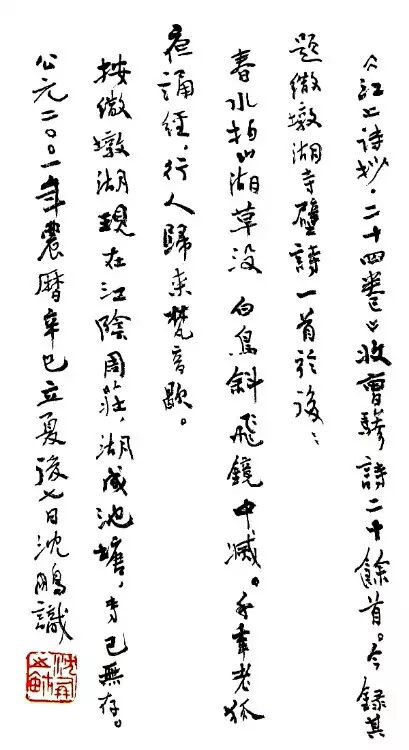 《江上诗抄·二十四卷》收曹驂詩二十餘首。今録其
题繖墩湖寺壁詩一首於後：
春水拍山湖草没 白鳥斜飛鏡中滅。千年老狐
夜誦經，行人歸來梵音歇。
按繖墩湖現在江陰周莊，湖成池塘，寺已無存。
公元二〇〇一年農曆辛巳立夏後七日沈鵬識